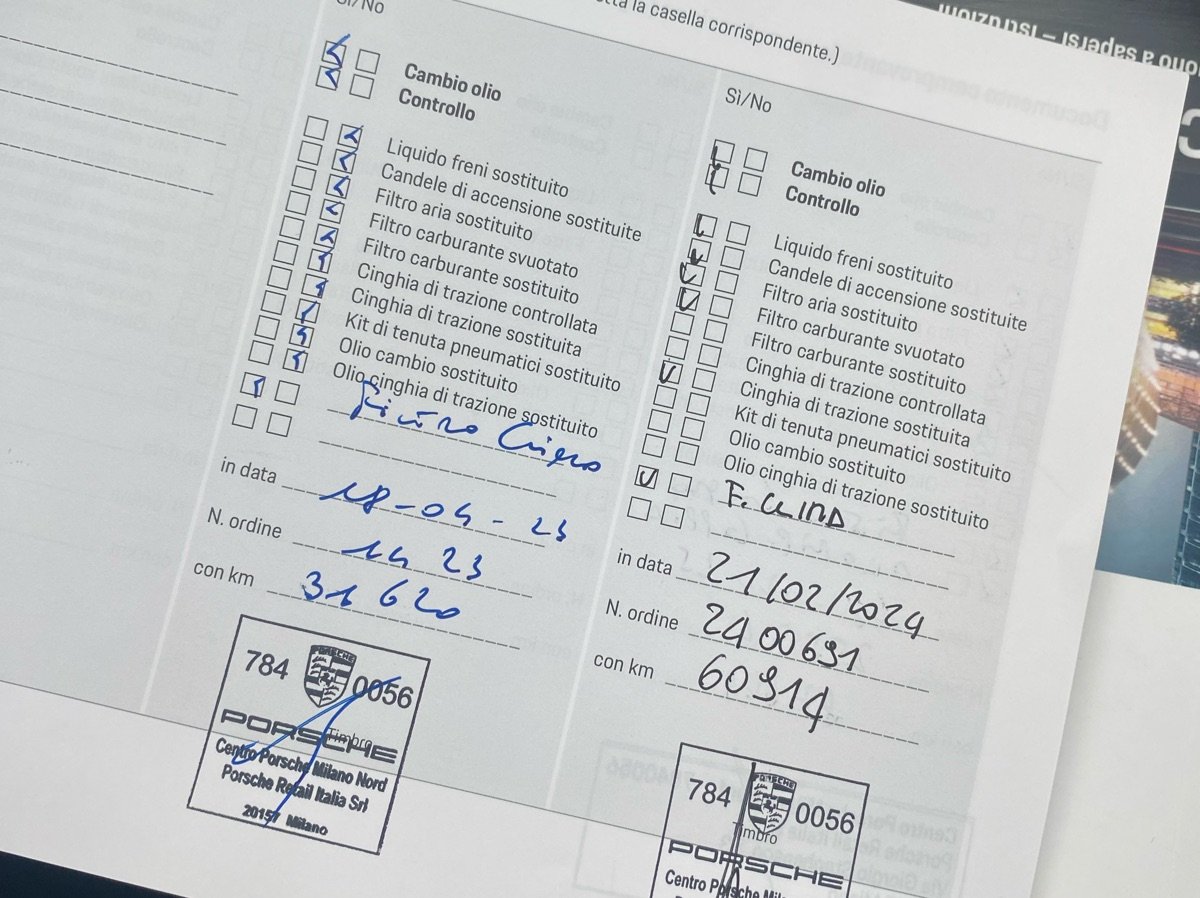 etta la casella corrispondente.)
Sì/No
Cambio olio
Controllo
Liquido freni sostituito
Candele di accensione sostituite
Filtro aria sostituito
Filtro carburante svuotato
Filtro carburante sostituito
Cinghia di trazione controllata
Cinghia di trazione sostituita
Kit di tenuta pneumatici sostituito
Olio cambio sostituito
Olio cinghia di trazione sostituito
in data 18-04-23
N. ordine
con km 31620
784 0056
PORSCHE
PORSCHE
Timbro
Centro Porsche Milano Nord
Porsche Retail Italia Srl
20157 Milano
Sì/No
Cambio olio
Controllo
Liquido freni sostituito
Candele di accensione sostituite
Filtro aria sostituito
Filtro carburante svuotato
Filtro carburante sostituito
Cinghia di trazione controllata
Cinghia di trazione sostituita
Kit di tenuta pneumatici sostituito
Olio cambio sostituito
Olio cinghia di trazione sostituito
F. CLIMA
in data 21/02/2024
N. ordine 2400691
con km 60914
784 0056
PORSCHE
Timbro
PORSCHE
Centro Porsche